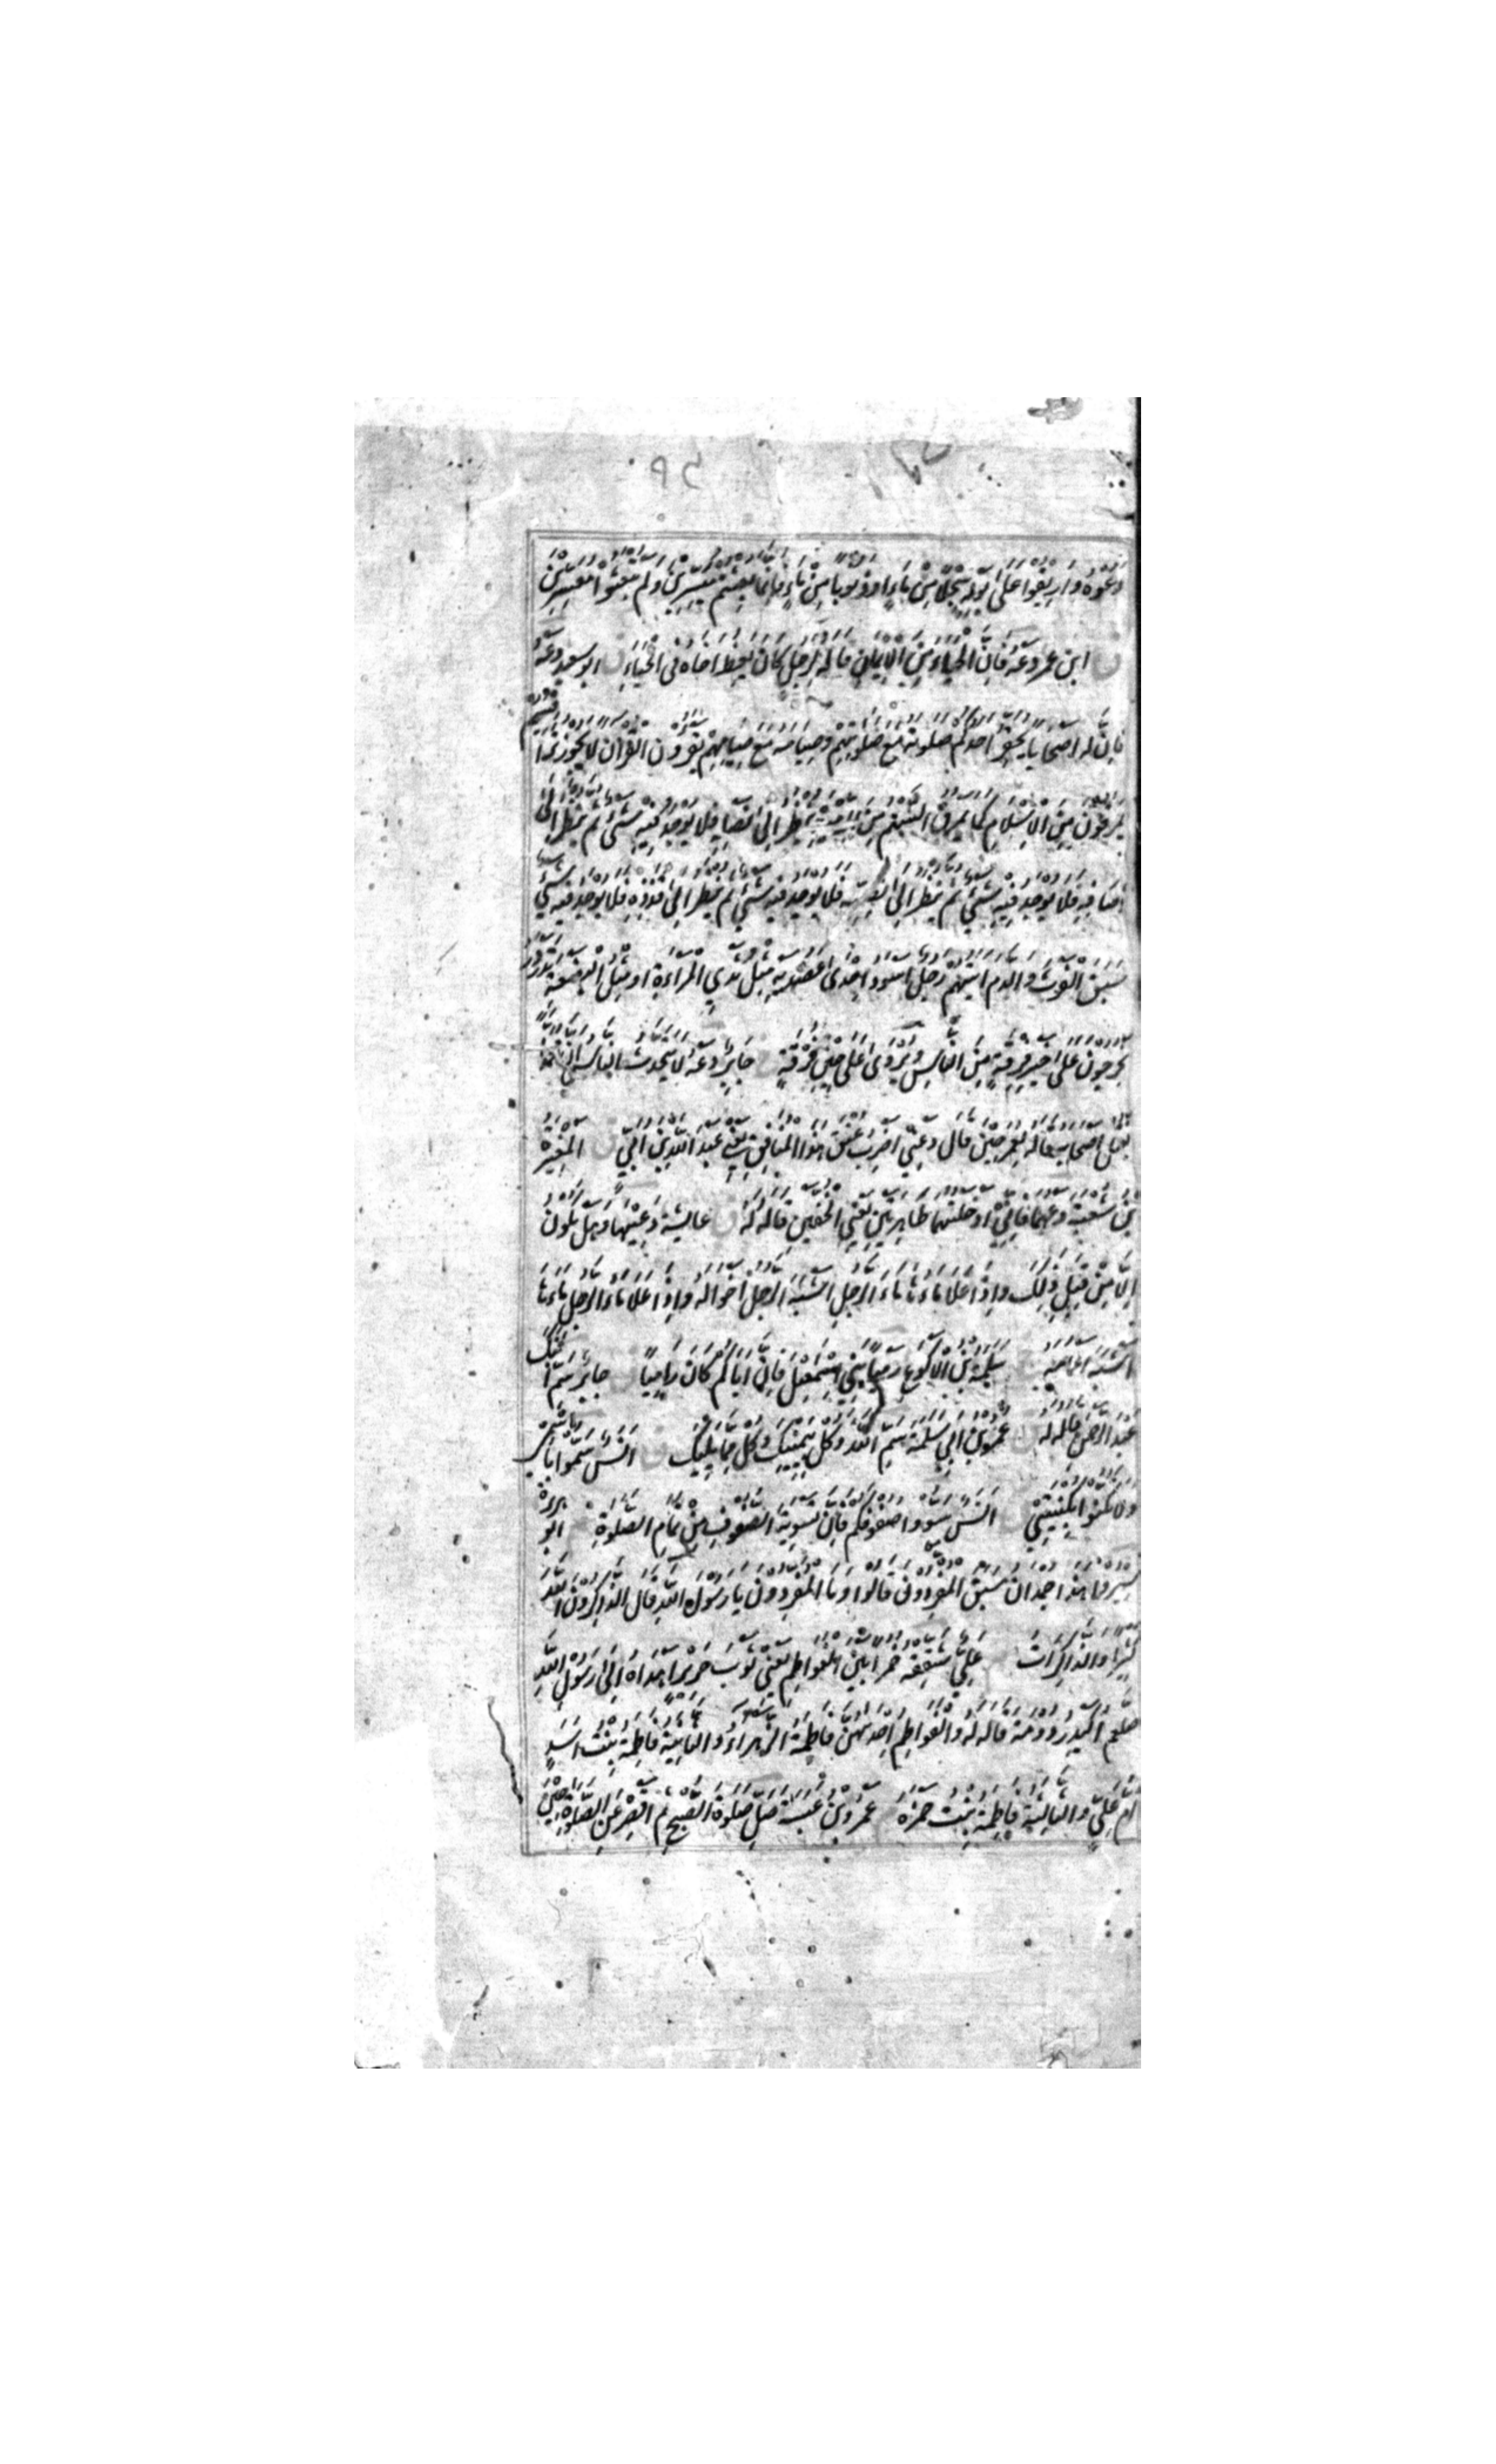 دَعُوهُ وَاَرِيقُوا عَلَى بَوْلِهِ سَجْلًا مِنْ مَاءٍ اَوْ ذَنُوبًا مِنْ مَاءٍ فَاِنَّمَا بُعِثْتُمْ مُيَسِّرِينَ وَلَمْ تُبْعَثُوا مُعَسِّرِينَ
ابن عمر دَعْهُ فَاِنَّ الْحَيَاءَ مِنَ الْاِيمَانِ قاله لِرَجُلٍ كَانَ يَعِظُ اَخَاهُ فِى الْحَيَاءِ ابو سعيد دَعْهُ
فَاِنَّ لَهُ اَصْحَابًا يَحْقِرُ اَحَدُكُمْ صَلٰوتَهُ مَعَ صَلٰوتِهِمْ وَصِيَامَهُ مَعَ صِيَامِهِمْ يَقْرَؤُنَ الْقُرْآنَ لَا يَجُوزُ تَرَاقِيَهُمْ
يَمْرُقُونَ مِنَ الْاِسْلَامِ كَمَا يَمْرُقُ السَّهْمُ مِنَ الرَّمِيَّةِ يُنْظَرُ اِلَى نَصْلِهِ فَلَا يُوجَدُ فِيهِ شَيْءٌ ثُمَّ يُنْظَرُ اِلَى
رِصَافِهِ فَلَا يُوجَدُ فِيهِ شَيْءٌ ثُمَّ يُنْظَرُ اِلَى نَضِيِّهِ فَلَا يُوجَدُ فِيهِ شَيْءٌ ثُمَّ يُنْظَرُ اِلَى قُذَذِهِ فَلَا يُوجَدُ فِيهِ شَيْءٌ
سَبَقَ الْفَرْثَ وَالدَّمَ اٰيَتُهُمْ رَجُلٌ اَسْوَدُ اِحْدَى عَضُدَيْهِ مِثْلُ ثَدْيِ الْمَرْاَةِ اَوْ مِثْلُ الْبَضْعَةِ تَدَرْدَرُ
يَخْرُجُونَ عَلَى خَيْرِ فِرْقَةٍ مِنَ النَّاسِ وَيُرْوَى عَلَى حِينِ فُرْقَةٍ جَابِرٌ دَعْهُ لَا يَتَحَدَّثُ النَّاسُ اَنَّ مُحَمَّدًا
يَقْتُلُ اَصْحَابَهُ قاله لِعُمَرَ حِينَ قَالَ دَعْنِي اَضْرِبْ عُنُقَ هٰذَا الْمُنَافِقِ يَعْنِي عَبْدَ اللهِ بْنَ اُبَيٍّ الْمُغِيرَةُ
بْنُ شُعْبَةَ دَعْهُمَا فَاِنِّي اَدْخَلْتُهُمَا طَاهِرَتَيْنِ يَعْنِي الْخُفَّيْنِ قَالَهُ لَهُ عايشة دَعِيْهَا وَهَلْ يَكُونُ
اِلَّا مِنْ قِبَلِ ذٰلِكَ وَاِذَا عَلَا مَاءُهَا مَاءَ الرَّجُلِ اَشْبَهَ الرَّجُلُ اَخْوَالَهُ وَاِذَا عَلَا مَاءُ الرَّجُلِ مَاءَهَا
اَشْبَهَ اَعْمَامَهُ سَلَمَةُ بْنُ الْاَكْوَعِ رَمْيًا بَنِي اِسْمٰعِيلَ فَاِنَّ اَبَاكُمْ كَانَ رَامِيًا جابر سَمِّ ابْنَكَ
عَبْدَ الرَّحْمٰنِ قاله له عمرو بن اَبِي سَلَمَةَ سَمِّ اللهَ وَكُلْ بِيَمِينِكَ وَكُلْ مِمَّا يَلِيكَ انس سَمُّوا بِاسْمِي
وَلَا تَكْنُوا بِكُنْيَتِي انس سَوُّوا صُفُوفَكُمْ فَاِنَّ تَسْوِيَةَ الصُّفُوفِ مِنْ تَمَامِ الصَّلٰوةِ ابو هريرة
سِيرُوا هٰذَا جُمْدَانُ سَبَقَ الْمُفَرِّدُونَ قَالُوا وَمَا الْمُفَرِّدُونَ يَا رَسُولَ اللهِ قَالَ الذَّاكِرُونَ اللهَ
كَثِيرًا وَالذَّاكِرَاتُ عَلِيٌّ شَقِّقْهُ خُمُرًا بَيْنَ الْفَوَاطِمِ يَعْنِي ثَوْبَ حَرِيرٍ اَهْدَاهُ اِلَى رَسُولِ اللهِ
صلعم اُكَيْدِرُ دُومَةَ قاله له وَالْفَوَاطِمُ اِحْدٰهُنَّ فَاطِمَةُ الزَّهْرَاءُ وَالثَّانِيَةُ فَاطِمَةُ بِنْتُ اَسَدٍ
اُمُّ عَلِيٍّ وَالثَّالِثَةُ فَاطِمَةُ بِنْتُ حَمْزَةَ عمرو بن عبسة صَلِّ صَلٰوةَ الصُّبْحِ ثُمَّ اَقْصِرْ عَنِ الصَّلٰوةِ حَتَّى